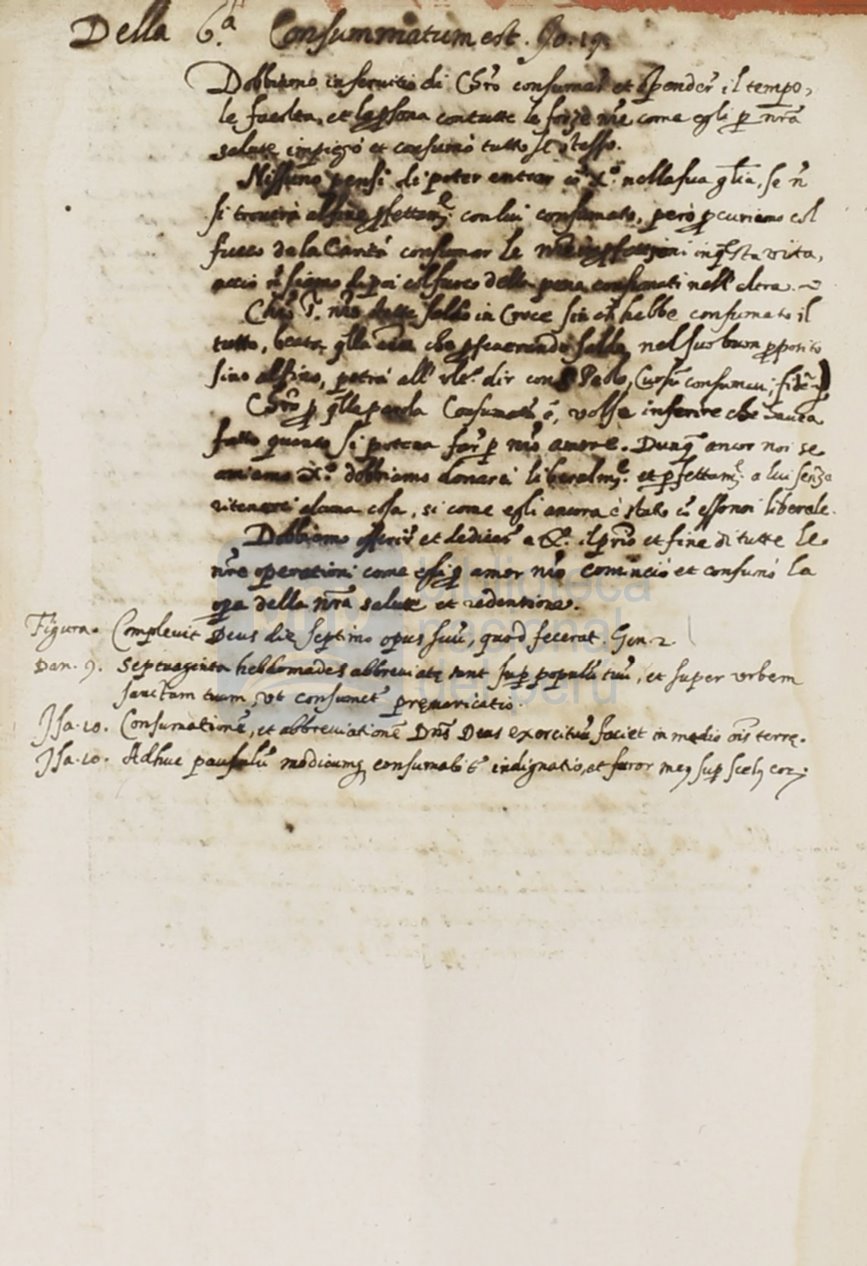 Della 6.ª Consummatum est. Jo. 19.
Dobbiamo in servitio di Chrō consumar et spender il tempo,
le facoltà, et la psona con tutte le forze nrē come egli p nrā
salute impiegò et consumò tutto se stesso.
Nissuno pensi di poter entrar cō Xº nella sua glīa, se nō
si troverà alfine pfettamᵉ con lui consumato, però pcuriamo col
fuoco de la Carità consumar le nrē impfettioni in qsta vita,
acciò nō siamo di poi col fuoco della pena consumati nell' altra.
Chrō S. nrō stette saldo in Croce sin chē hebbe consumato il
tutto, beata qlla che pseverando salda nel suo buon pposito
sino alfine, potrà all' ulᵒ dir con S. Paolo, Cursū consumavi, fidē
Chrō p qlla parola Consumatū ē, volse inferire che havea
fatto quanto si poteva far p nrō amore. Dunq ancor noi se
amiamo Xº dobbiamo donarci liberalmᵉ et pfettamᵉ a lui senza
ritenerci alcuna cosa, si come egli ancora è stato cō esso noi liberale.
Dobbiamo offerir et dedicar a Xº il prīo et fine di tutte le
nrē operationi come esso p amor nrō cominciò et consumò la
opa della nrā salute et redentione.
Figura. Complevit Deus die septimo opus suū, quod fecerat. Gen. 2
Dan. 9. Septuaginta hebdomades abbreviatę sunt sup populū tuū, et super urbem
sanctam tuam, ut consumetʳ pręvaricatio.
Isa. 10. Consumationē, et abbreviationē Dnš Deus exercituū faciet in medio oīs terrę.
Isa. 10. Adhuc paululū modicumq consumabitʳ indignatio, et furor meq sup scelq eor
biblioteca
nacional
del perú